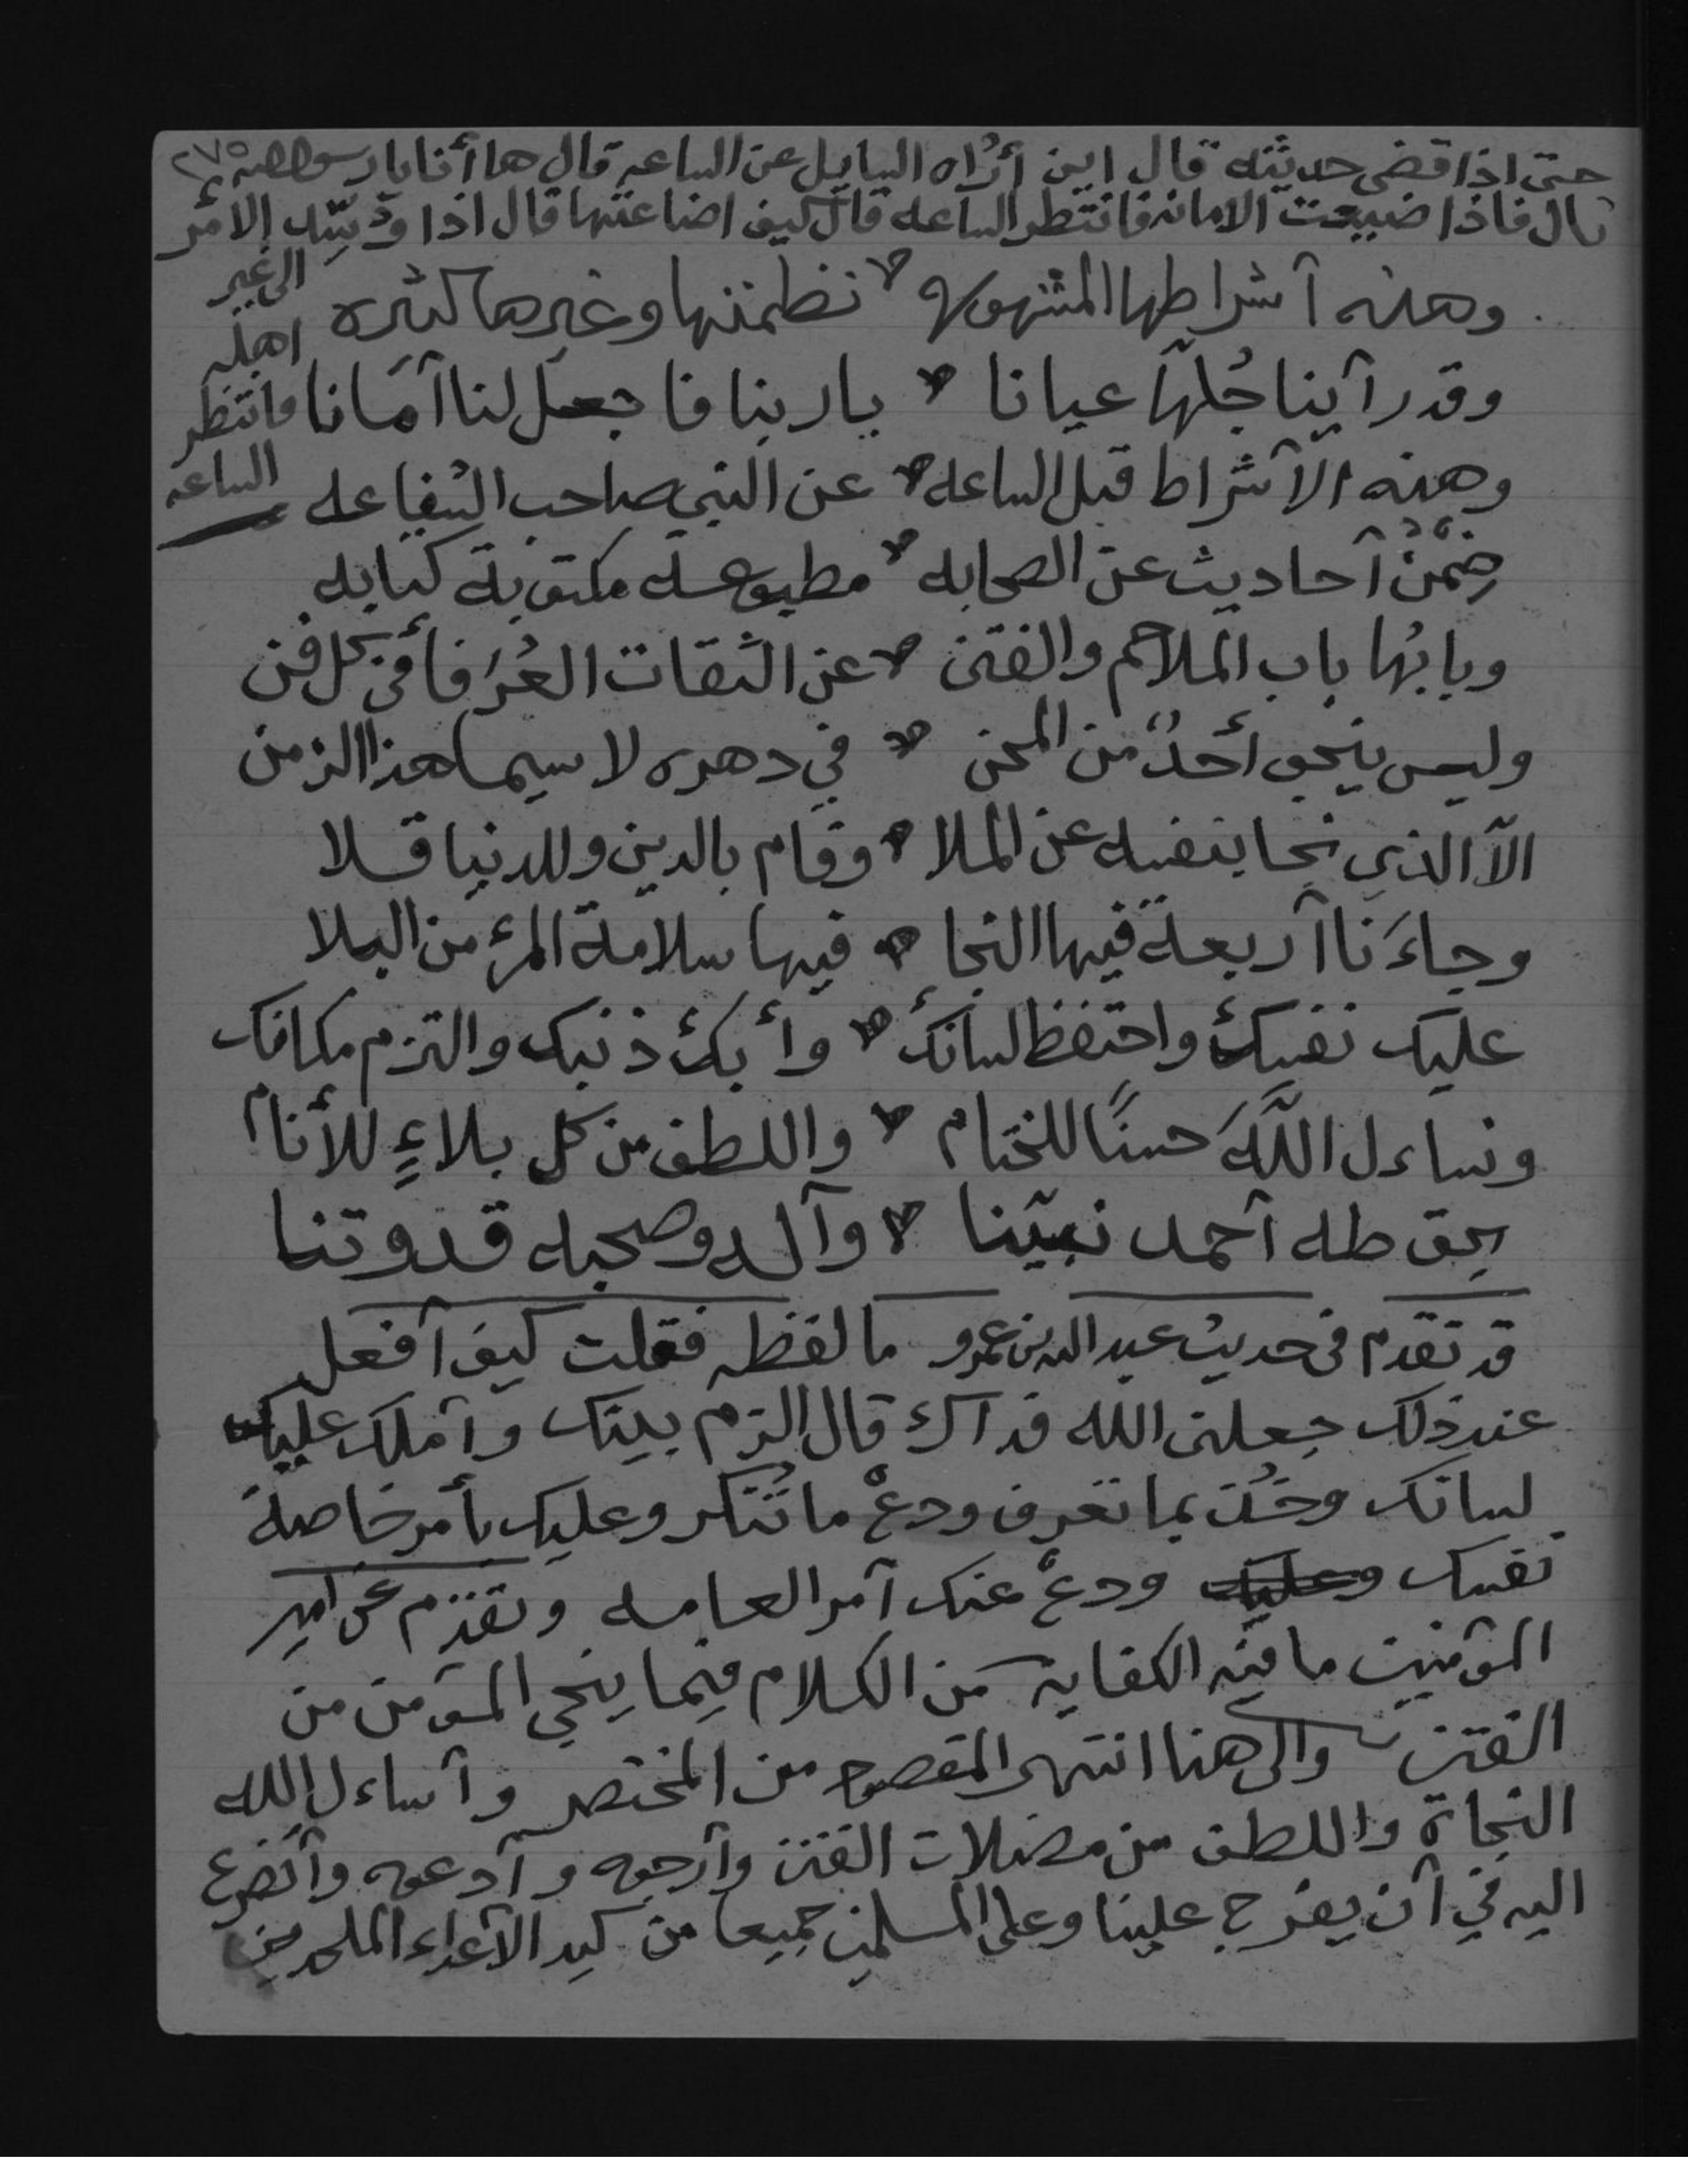 حتى اذا قضى حديثه قال اين أُراه السايل عن الساعه قال ها أنا يا رسول الله ٢٧٥
قال فاذا ضيعت الامانه فانتظر الساعه قال كيف اضاعتها قال اذا وُسِّد الامر
الى غير
اهله
فانتظر
الساعه
وهذه آشراطها المشهوره نظمتها وغيرها كثيره
وقد رآينا جُلها عيانا يا ربنا فاجعل لنا آمانا
وهذه الآشراط قبل الساعه عن النبي صاحب الشفاعه
ضِمْنُ آحاديث عن الصحابه مطبوعة مكتوبة كتابه
وبابُها باب الملاحم والفتن عن الثقات العُرَفا في كل فن
وليس ينجو أحدٌ من المحن في دهره لا سيما هذا الزمن
الآ الذي نجا بنفسه عن الملا وقام بالدين وللدنيا قلا
وجاءَنا آربعة فيها النجا فيها سلامة المرء من البلا
عليك نفسك واحتفظ لسانك وأبك ذنبك والتزم مكانك
ونساءل اللَّهَ حسنًا للختام واللطف من كل بلاءٍ للأنام
بحق طه آحمد نبيّنا وآله وصحبه قدوتنا
قد تقدم فى حديث عبد الله بن عمرو ما لفظه فقلت كيف آفعل
عند ذلك جعلنى الله فدآك قال الزم بيتك وآملك عليك
لسانك وخُذ بما تعرف ودعْ ما تُنكر وعليك بأمر خاصة
نفسك وعليك ودعْ عنك آمر العامه وتقدم عن امير
المؤمنين ما فيه الكفايه من الكلام فيما ينجي المؤمن من
الفتن والى هنا انتهى المقصود من المختصر وآساءل الله
النجاة واللطف من مضلات الفتن وآرجوه وآدعوه وآتضرع
اليه في آن يفرج علينا وعلى المسلمين جميعا من كيد الآعداء الملحدين